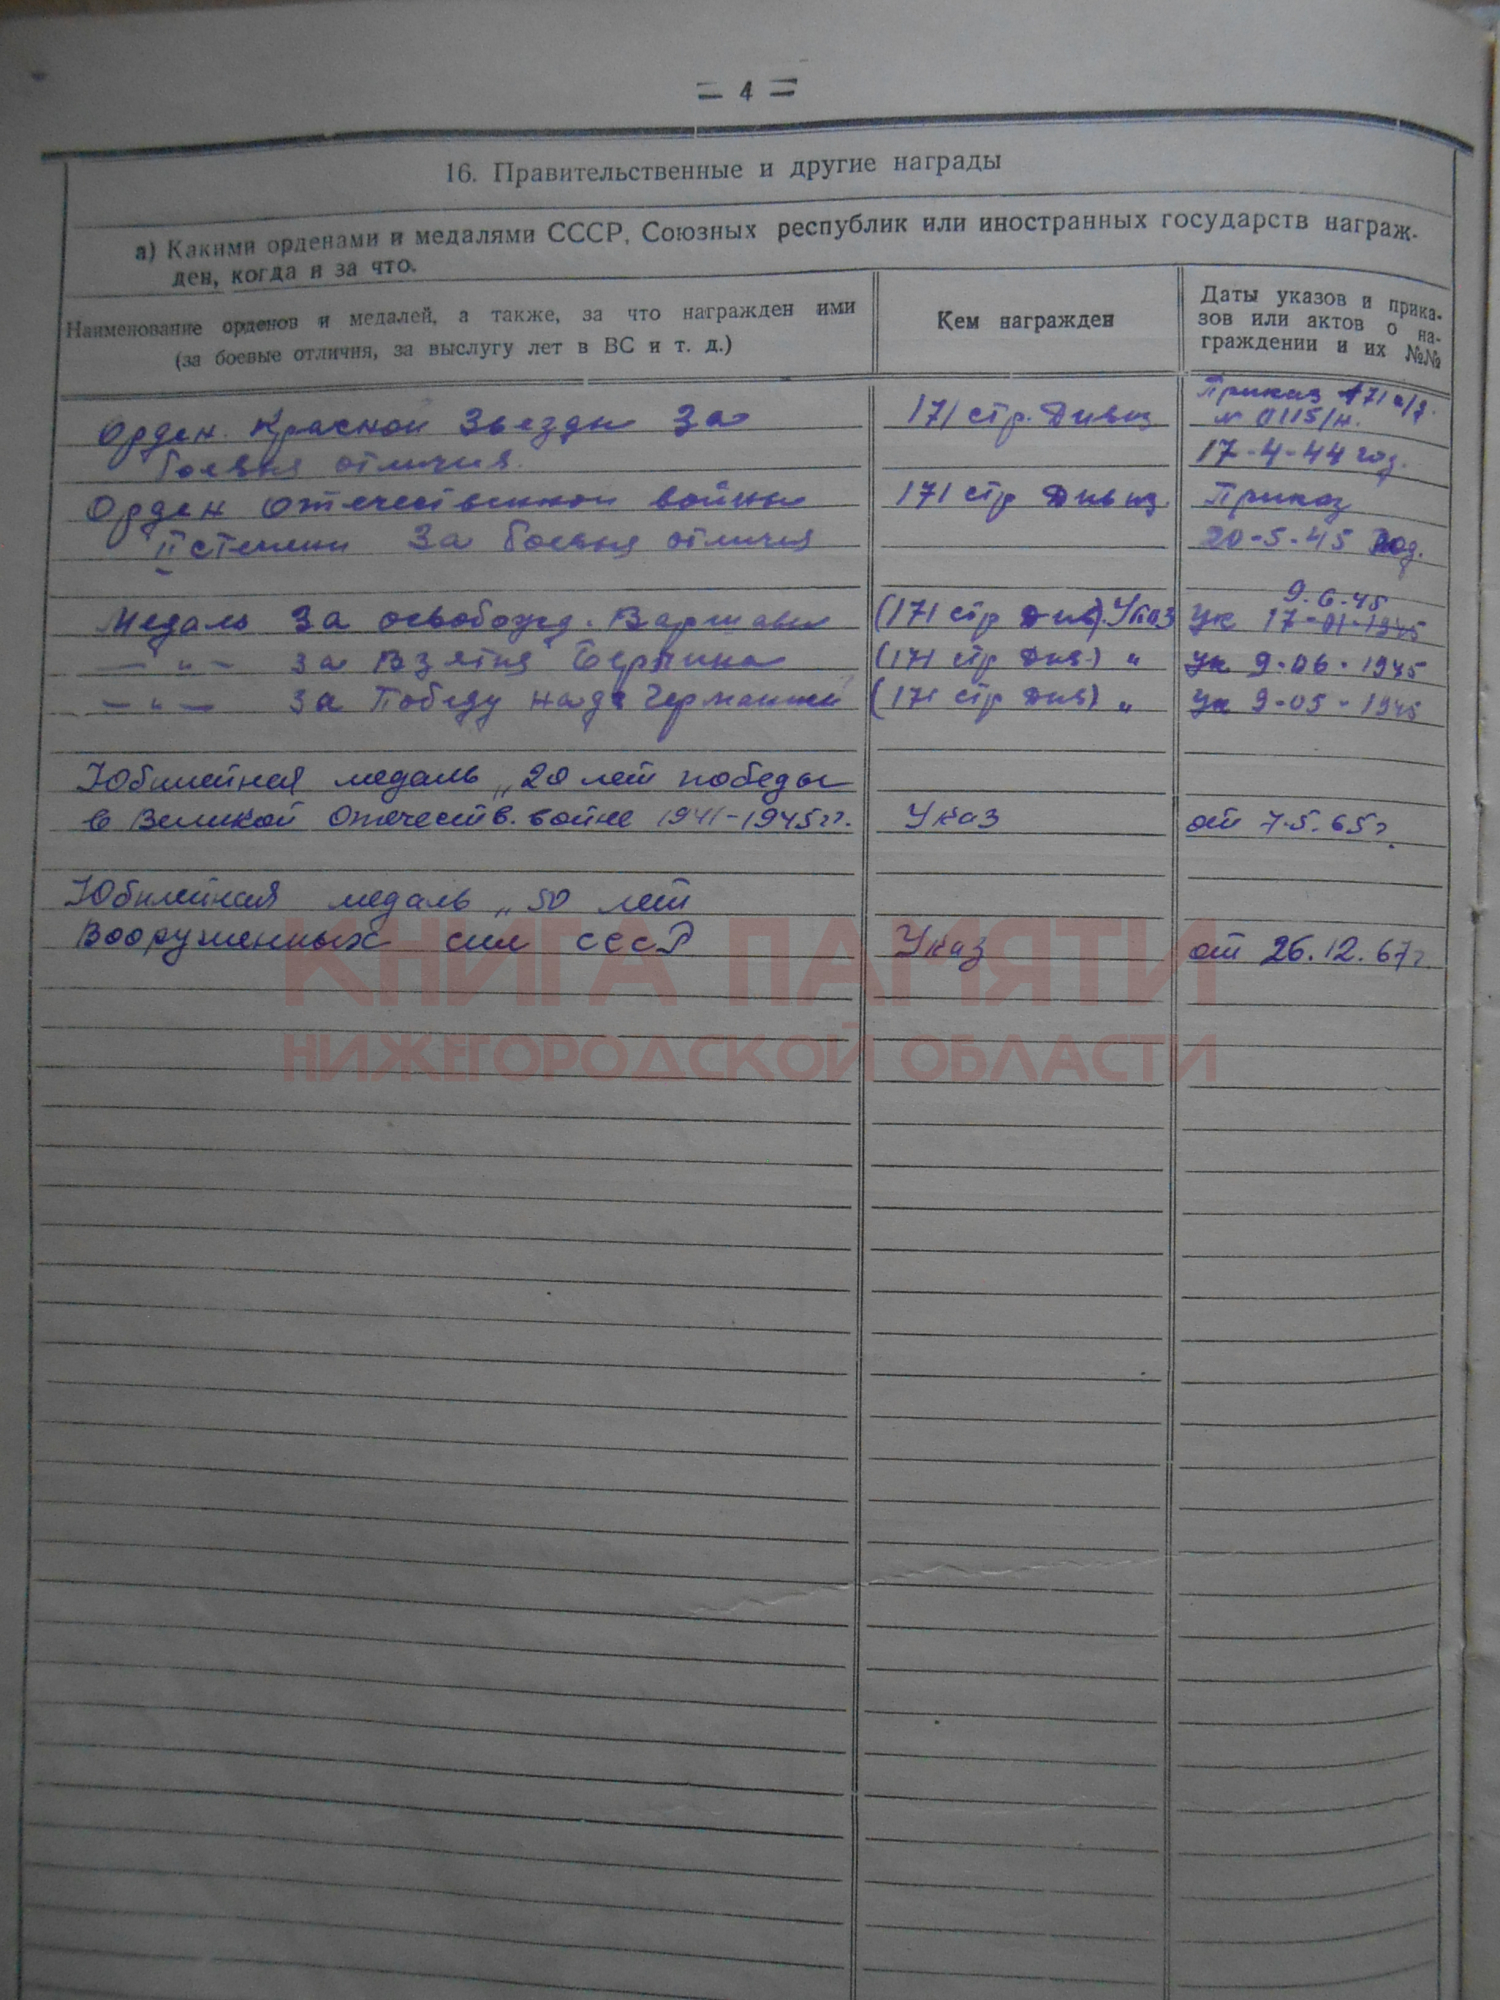 = 4 =
16. Правительственные и другие награды
а) Какими орденами и медалями СССР, Союзных республик или иностранных государств награж-
ден, когда и за что.
Наименование орденов и медалей, а также, за что награжден ими
(за боевые отличия, за выслугу лет в ВС и т. д.)
Кем награжден
Даты указов и прика-
зов или актов о на-
граждении и их №№
Орден Красной Звезды За 171 стр. Дивиз Приказ 171 с/д.
№ 0115/н.
боевые отличия. 17-4-44 год.
Орден Отечественной войны 171 стр Дивиз Приказ
II степени За боевые отличия 20-5-45 год.
9.6.45
Медаль За освобожд. Варшавы (171 стр Див). Указ Ук 17-01-1945
— " — за Взятия Берлина (171 стр Див.) " Ук 9-06-1945
— " — за Победу над Германией (171 стр Див) " Ук 9-05-1945
Юбилейная медаль „20 лет победы
в Великой Отечеств. войне 1941-1945гг. Указ от 7.5.65г.
Юбилейная медаль „50 лет
Вооруженных сил СССР Указ от 26.12.67г
КНИГА ПАМЯТИ
НИЖЕГОРОДСКОЙ ОБЛАСТИ